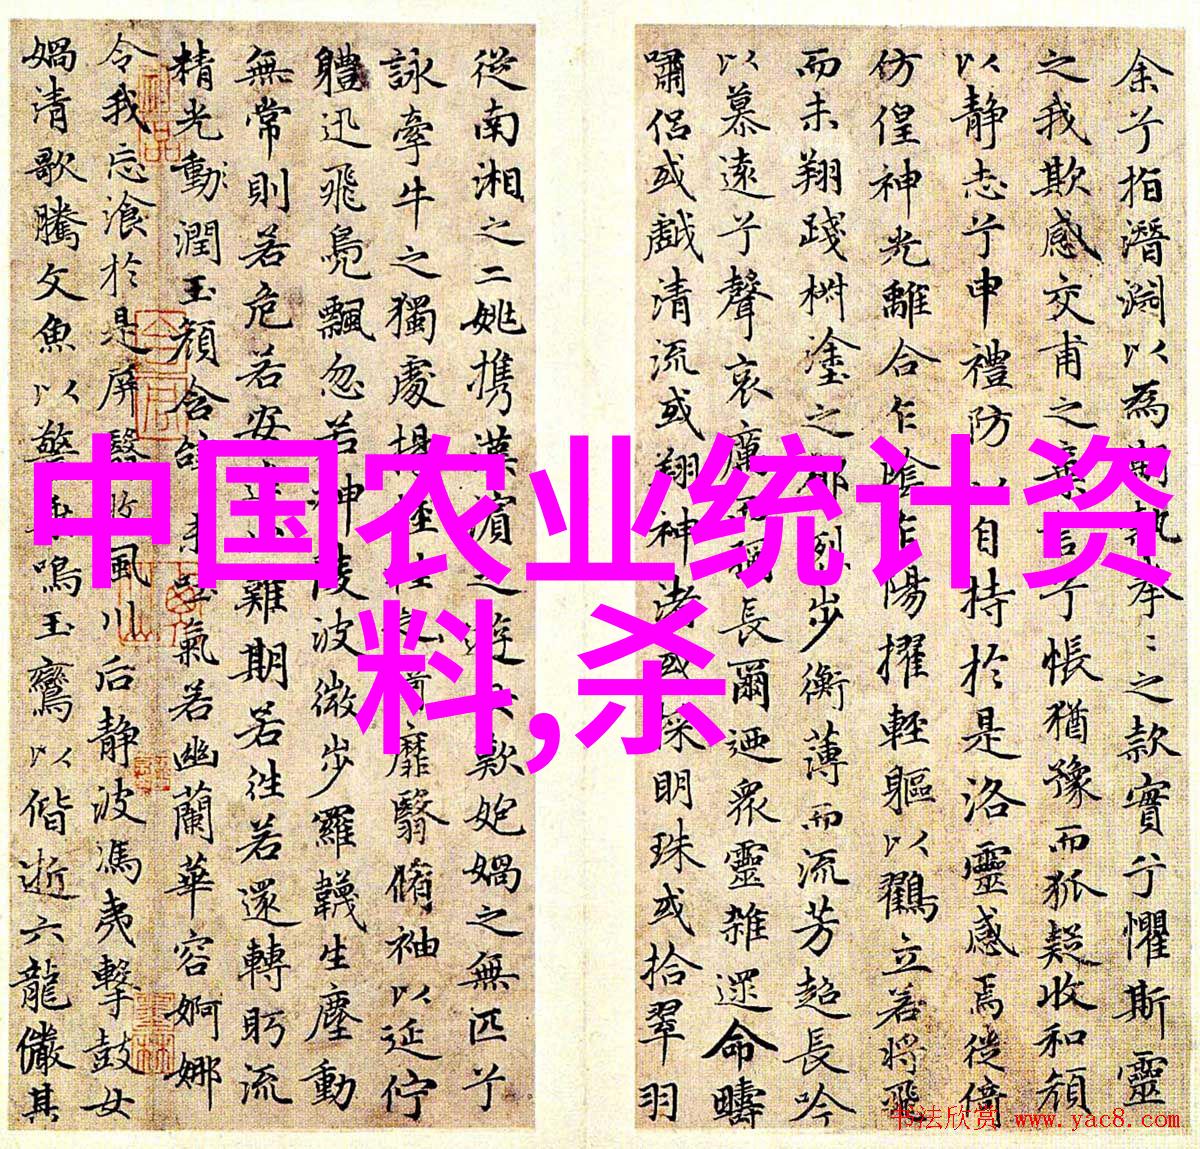 余兮指潛淵以為執拳〻之款實兮懼斯靈
之我欺感交甫之棄言兮悵猶豫而狐疑收和顏
以静志兮申禮防以自持於是洛靈感焉徙倚
仿偟神光離合乍陰乍陽擢輕軀以鶴立若將飛
而未翔踐椒塗之烈步衡薄而流芳超長吟
以慕遠兮聲哀厲而彌長爾迺眾靈雜遝命疇
嘯侣或戲清流或翔神渚或採明珠或拾翠羽
從南湘之二姚攜漢濱之遊女歎匏媧之無匹兮
詠牽牛之獨處揚靡翳脩袖以延佇
體迅飛鳧飄忽若神陵波微步羅韈生塵動
無常則若危若安難期若往若還轉眄流
精光動潤玉顏含辭未氣若幽蘭華容婀娜
令我忘湌於是屏翳收風川后静波馮夷擊鼓女
媧清歌騰文魚以警鳴玉鸞以偕逝六龍儼其
中国农业统计资
料,杀
书法欣赏 www.yac8.com